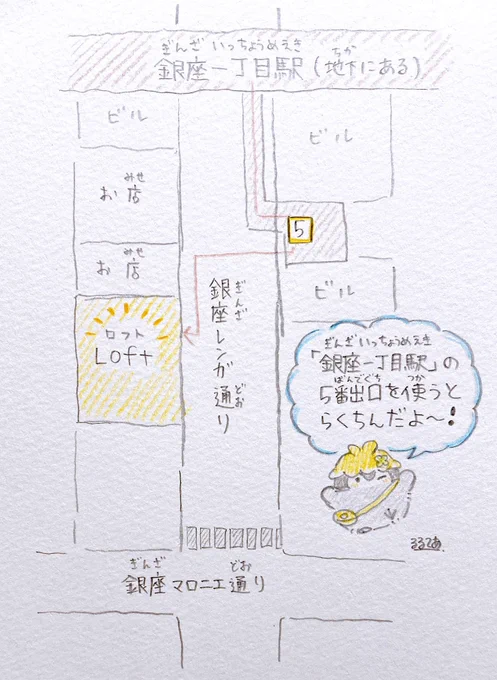 ぎんざ いっちょうめえき ちか
銀座一丁目駅(地下にある)
ビル
ビル
みせ
お店
みせ
お店
5
ビル
ロフト
Loft
ぎんざ どお
銀座レンガ通り
ぎんざいっちょうめえき
「銀座一丁目駅」の
ばんでぐち つか
5番出口を使うと
らくちんだよ〜!
るるてあ
ぎんざ どお
銀座マロニエ通り